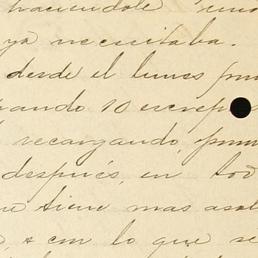 haciendole una
ya necesitaba.
desde el lunes
10
recargando,
después, en tod
tiene mas
, & con lo que se